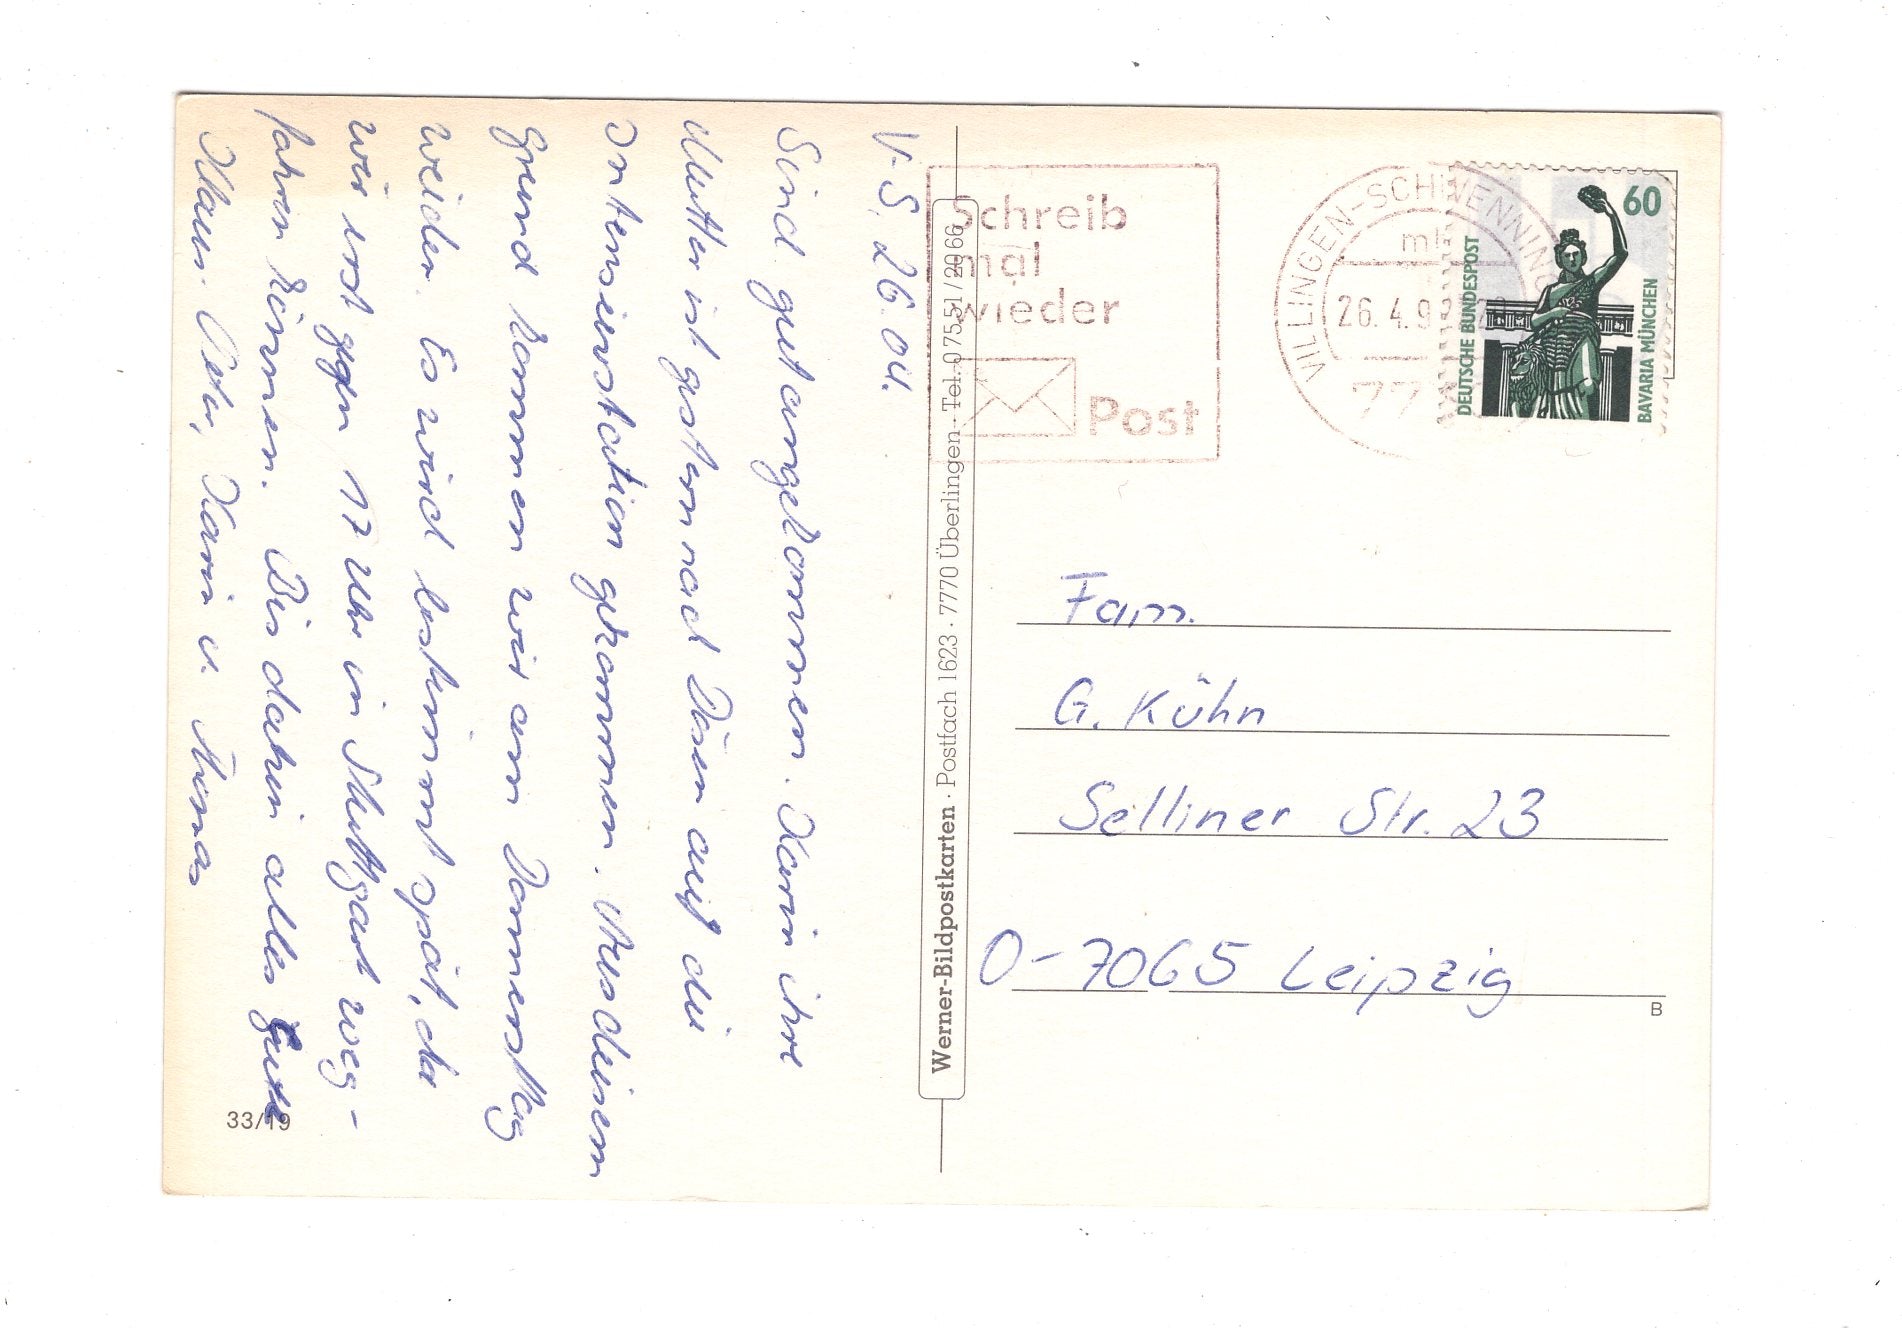 V-S. 26.04.
Sind gut angekommen. Karin ihre
Mutter ist gestern nach auf die
Intensivstation gekommen. Aus diesem
Grund kommen wir am Donnerstag
wieder. Es wird bestimmt spät, da
wir erst gegen 17 Uhr in Stuttgart weg-
fahren können. Bis dahin alles Gute
Klaus- Karin u.
33/19
Werner-Bildpostkarten · Postfach 1623 · 7770 Überlingen · Tel. 07551/2066
Schreib
mal
wieder
Post
VILLINGEN-SCHWENNINGEN
26.4.9
77
60
DEUTSCHE BUNDESPOST
BAVARIA MÜNCHEN
Fam.
G. Kühn
Selliner Str. 23
O-7065 Leipzig
B